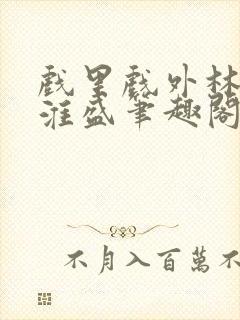 戲里戲外林
淮盛筆趣閣
不月入百萬不